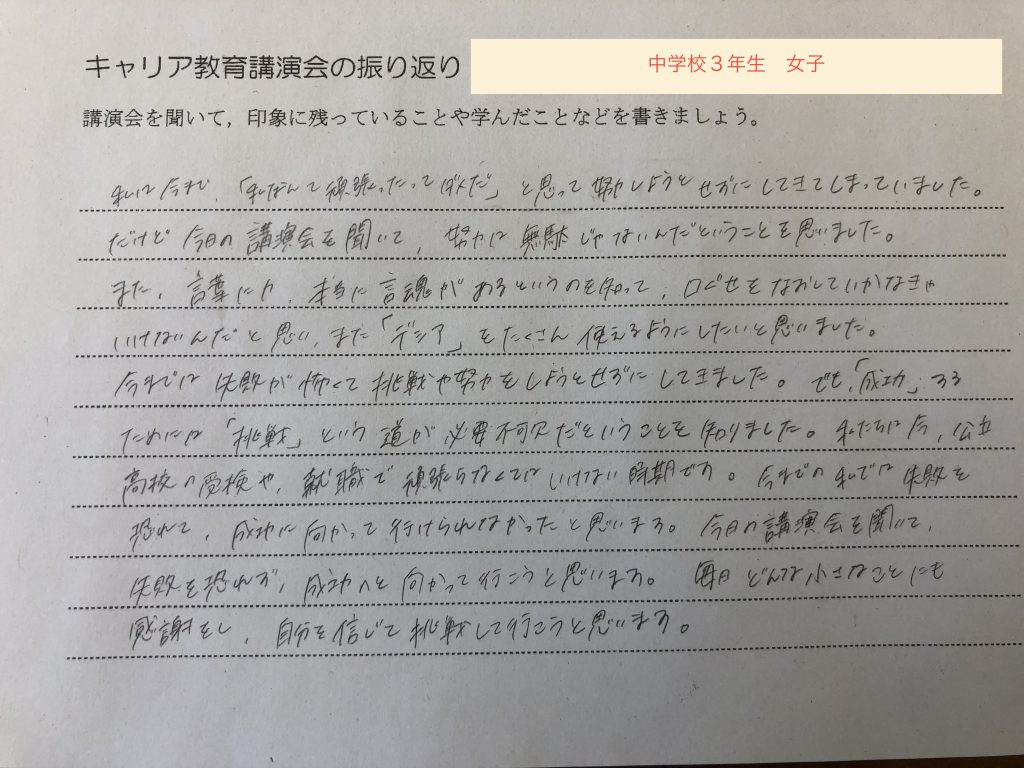 キャリア教育講演会の振り返り
中学校３年生　女子
講演会を聞いて，印象に残っていることや学んだことなどを書きましょう。
私は今まで、「私なんて頑張ったってダメだ」と思って努力しようとせずにしてきてしまっていました。
だけど今日の講演会を聞いて、努力は無駄じゃないんだということを思いました。
また、言葉に力、本当に言魂があるというのを知って、口ぐせをなおしていかなきゃ
いけないんだと思い、また「デシア」をたくさん使えるようにしたいと思いました。
今までは失敗が怖くて挑戦や努力をしようとせずにしてきました。でも、「成功」する
ためには「挑戦」という道が必要不可欠だということを知りました。私たちは今、公立
高校の受検や、就職で頑張らなくてはいけない時期です。今までの私では失敗を
恐れて、成功に向かって行けられなかったと思います。今日の講演会を聞いて、
失敗を恐れず、成功へと向かって行こうと思います。毎日どんな小さなことにも
感謝をし、自分を信じて挑戦して行こうと思います。